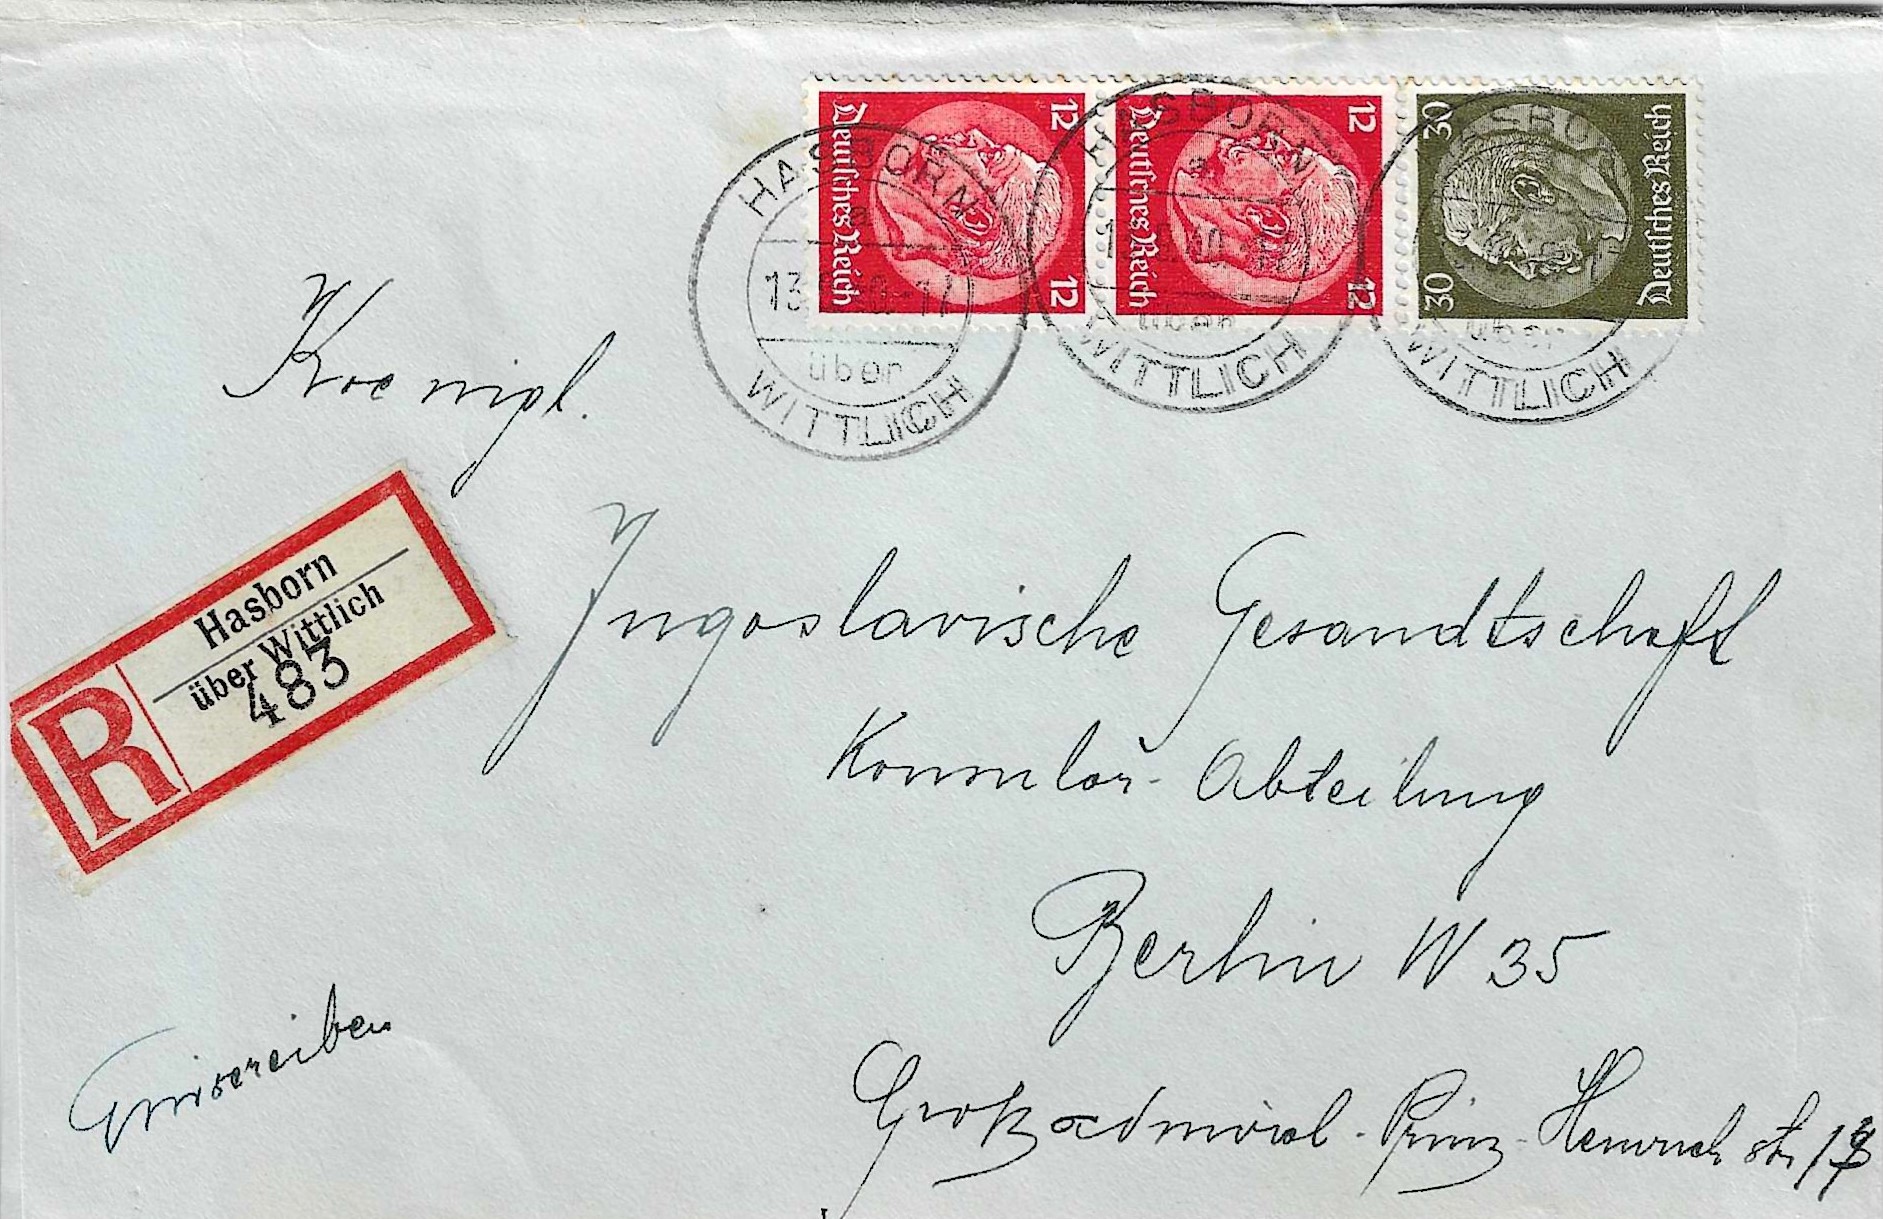 12 12 Deutsches Reich
12 12 Deutsches Reich
30 30 Deutsches Reich
HASBORN
a
über
WITTLICH
HASBORN
a
über
WITTLICH
HASBORN
über
WITTLICH
Koenigl.
R
Hasborn
über Wittlich
483
Jugoslavische Gesandtschaft
Konsular-Abteilung
Berlin W 35
Einschreiben
Großadmiral-Prinz-Heinrich str